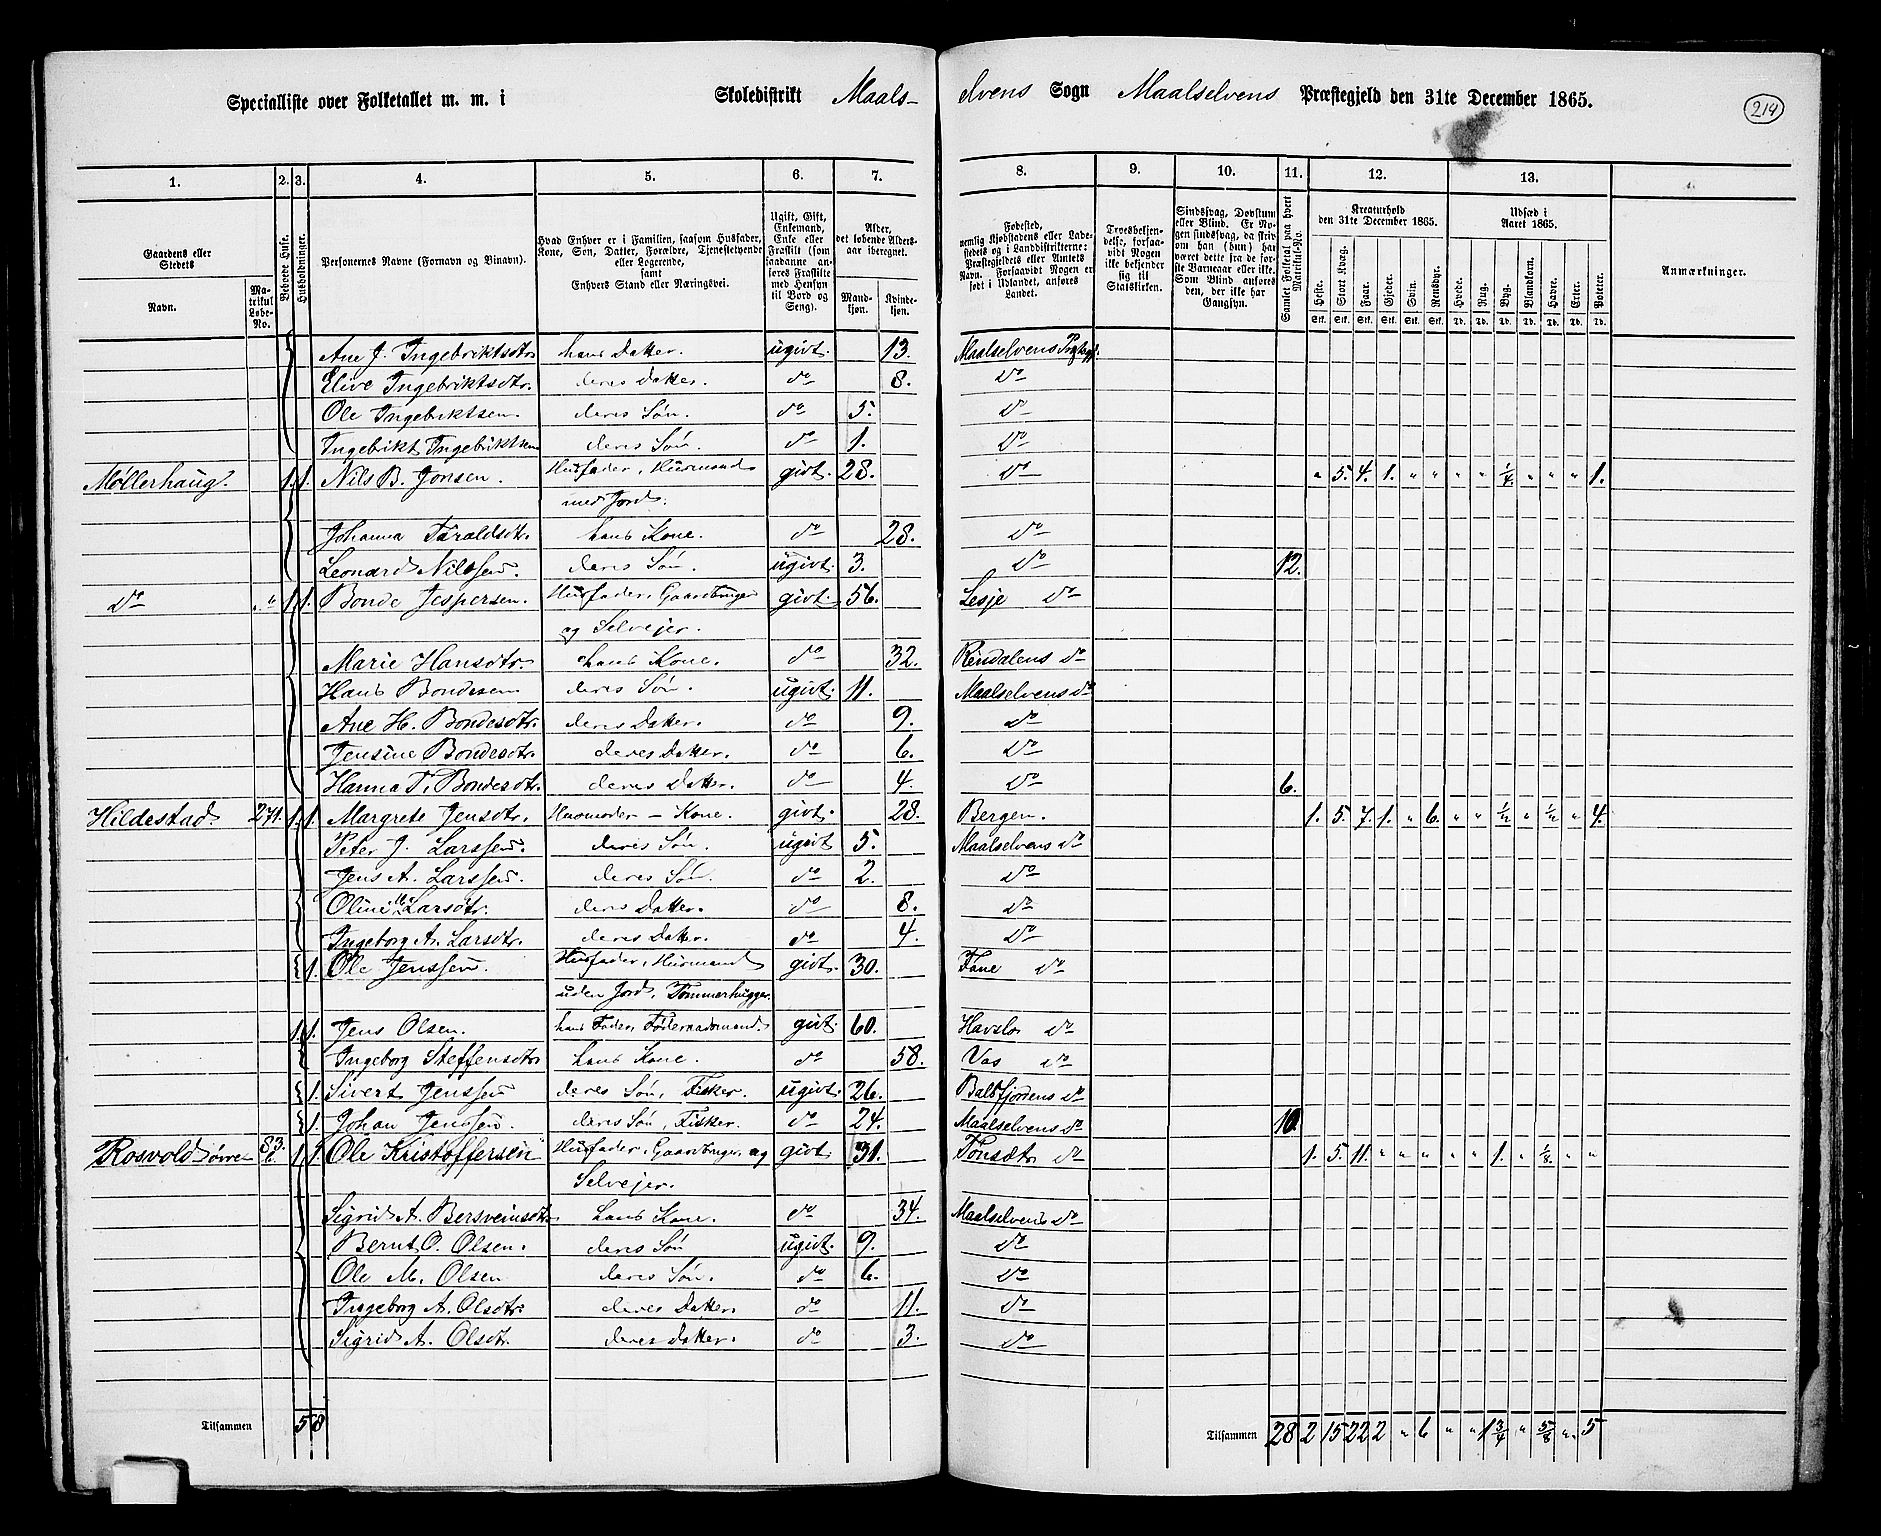 Specialliste over Folketallet m. m. i Skoledistrikt Maalselvens Sogn Maalselvens Præstegjeld den 31te December 1865. 214
1. 2. 3. 4. 5. 6. 7. 8. 9. 10. 11. 12. 13.
Gaardens eller Stedets
Navn. Matrikul Løbe-No.
Beboede Huse.
Husholdninger.
Personernes Navne (Fornavn og Binavn).
Hvad Enhver er i Familien, saasom Husfader, Kone, Søn, Datter, Forældre, Tjenestetyende eller Logerende, samt Enhvers Stand eller Næringsvei.
Ugift, Gift, Enkemand, Enke eller Fraskilt (som saadanne anføres Fraskilte med Hensyn til Bord og Seng).
Alder, det løbende Aldersaar iberegnet.
Mandkjøn. Kvindekjøn.
Fødested, nemlig Kjøbstadens eller Ladestedets og i Landdistrikterne: Præstegjeldets eller Amtets Navn. Forsaavidt Nogen er født i Udlandet, anføres Landet.
Troesbekjendelse, forsaavidt Nogen ikke bekjender sig til Statskirken.
Sindssvag, Døvstum eller Blind. Er Nogen sindssvag, da skrives om han (hun) har været dette fra de første Barneaar eller ikke. Som Blind anføres den, der ikke har Gangsyn.
Samlet Folketal paa hvert Matrikul-No.
Kreaturhold den 31te December 1865.
Heste. Stort Kvæg. Faar. Gjeder. Svin. Rensdyr.
Udsæd i Aaret 1865.
Hvede. Rug. Byg. Blandkorn. Havre. Erter. Poteter.
Anmærkninger.
Ane J. Ingebriktsdtr. hans Datter. ugivt. 13. Maalselvens
Elive Ingebriktsdtr. deres Datter. do 8. do
Ole Ingebriktsen. deres Søn. do 5. do
Ingebrikt Ingebriktsen deres Søn. do 1. do
Møllerhaug. 1. 1. Nils B. Jonsen. Husfader, Husmand givt. 28. do " 5. 4. 1. " " " " 1/4 " " " 1.
med Jord.
Johanna Taraldsdtr. hans Kone. do 28. do
Leonard Nilssen. deres Søn. ugivt. 3. do 12.
do " " 1. 1. Bonde Jespersen. Husfader, Gaardbruger givt. 56. Lesje do
og Selvejer.
Marie Hansdtr. hans Kone. do 32. Rendalens do
Hans Bondesen deres Søn. ugivt. 11. Maalselvens do
Ane H. Bondesdtr. deres Datter. do 9. do
Jensine Bondesdtr. deres Datter. do 6. do
Hanna T. Bondesdtr. deres Datter. do 4. do 6.
Hildestad. 271. 1. 1. Margrete Jensdtr. Husmoder - Kone. givt. 28. Bergen. 1. 5. 7. 1. " 6. " " 1/2 " 1/2 " 4.
Peter J. Larssen. deres Søn. ugivt. 5. Maalselvens do
Jens A. Larssen. deres Søn. do 2. do
Oline Larsdtr. deres Datter. do 8. do
Ingeborg A. Larsdtr. deres Datter. do 4. do
1. Ole Jenssen. Husfader, Husmand givt. 30. Fane do
uden Jord, Tømmerhugger.
1. 1. Jens Olsen. hans Fader, Føderaadsmand. givt. 60. Havslo do
Ingeborg Steffensdtr. hans Kone. do 58. Vos do
1. Sivert Jenssen deres Søn, Fisker. ugivt. 26. Balsfjordens do
1. Johan Jenssen. deres Søn, Fisker. do 24. Maalselvens do 10.
Rosvold øvre 1 1. Ole Kristoffersen Husfader, Gaardbruger og givt. 31. Tønsæt do 1. 5. 11. " " " " " 1. " 1/8. " "
Selvejer.
Sigrid A. Bersveinsdtr. hans Kone. do 34. Maalselvens do
Bernt O. Olsen. deres Søn ugivt. 9. do
Ole M. Olsen deres Søn. do 6. do
Ingeborg A. Olsdtr. deres Datter. do 11. do
Sigrid A. Olsdtr. deres Datter. do 3. do
Tilsammen 5 8 Tilsammen 28 2 15 22 2 " 6 " " 1 3/4 " 5/8 " 5